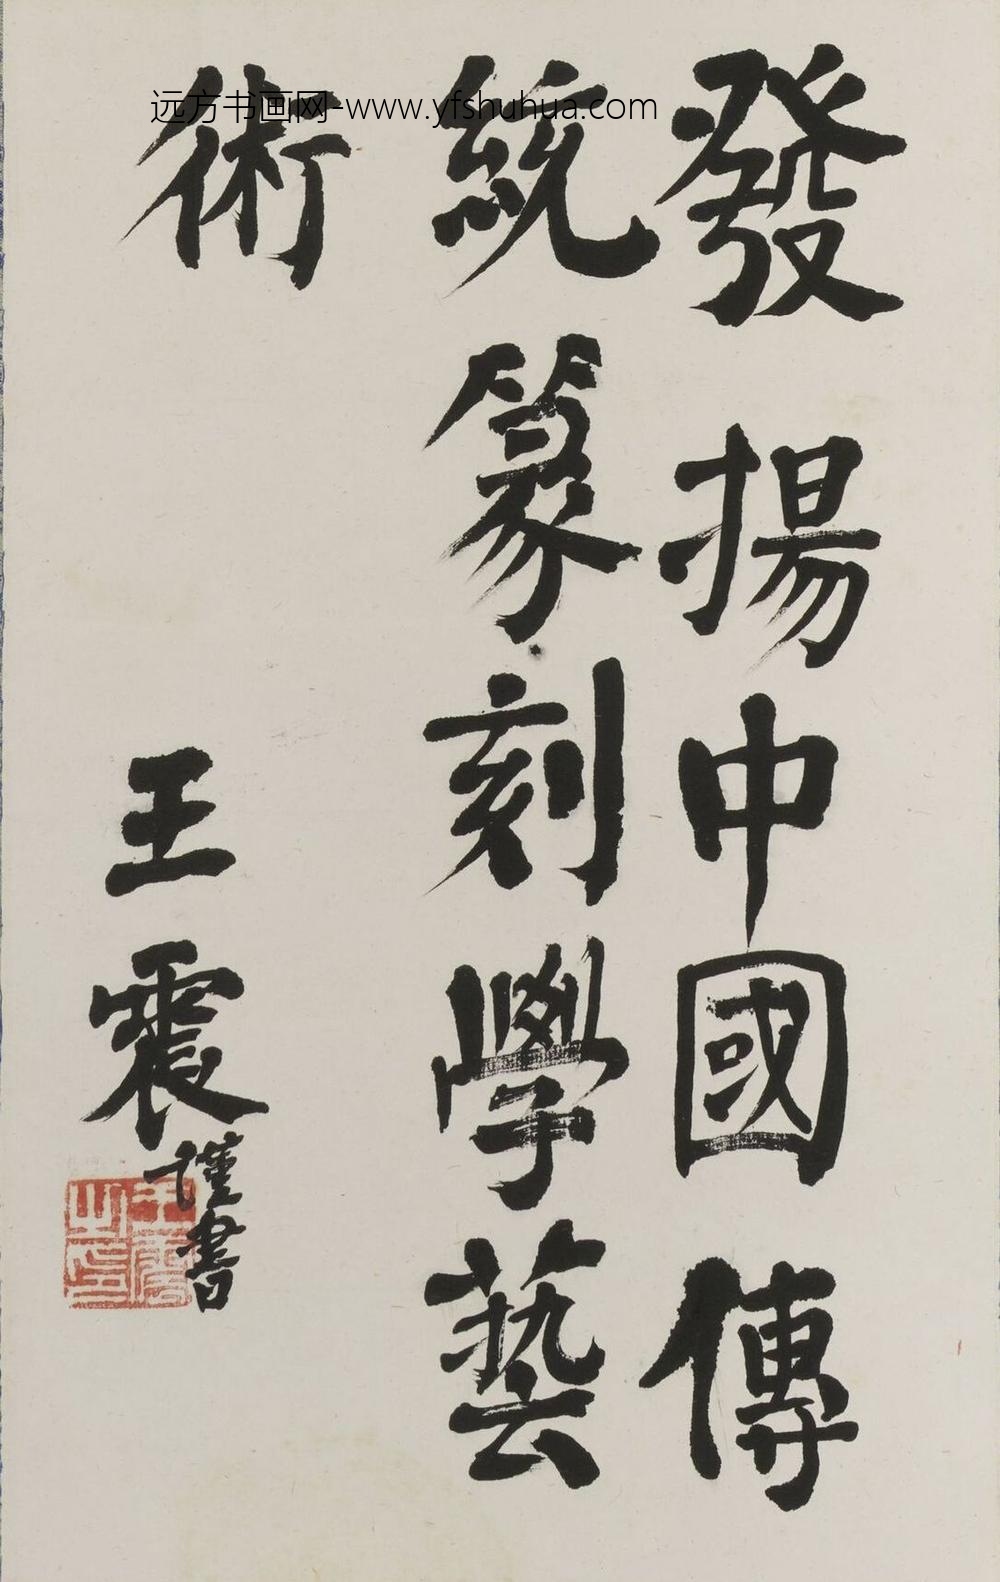 發揚中國傳
統篆刻學藝
術
王震謹書
王震之印
远方书画网-www.yfshuhua.com